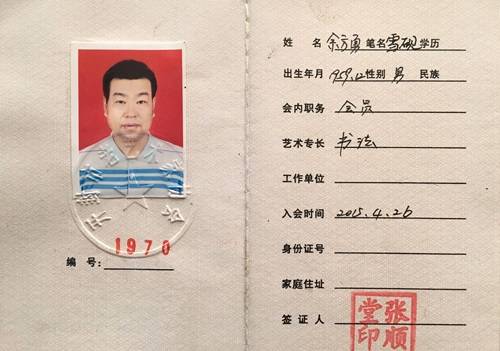 1970
编 号:
姓 名 余方勇 笔名 雪砚 学历
出生年月 1959.12 性别 男 民族
会内职务 会员
艺术专长 书法
工作单位
入会时间 2015.4.26
身份证号
家庭住址
签 证 人
张顺
堂印